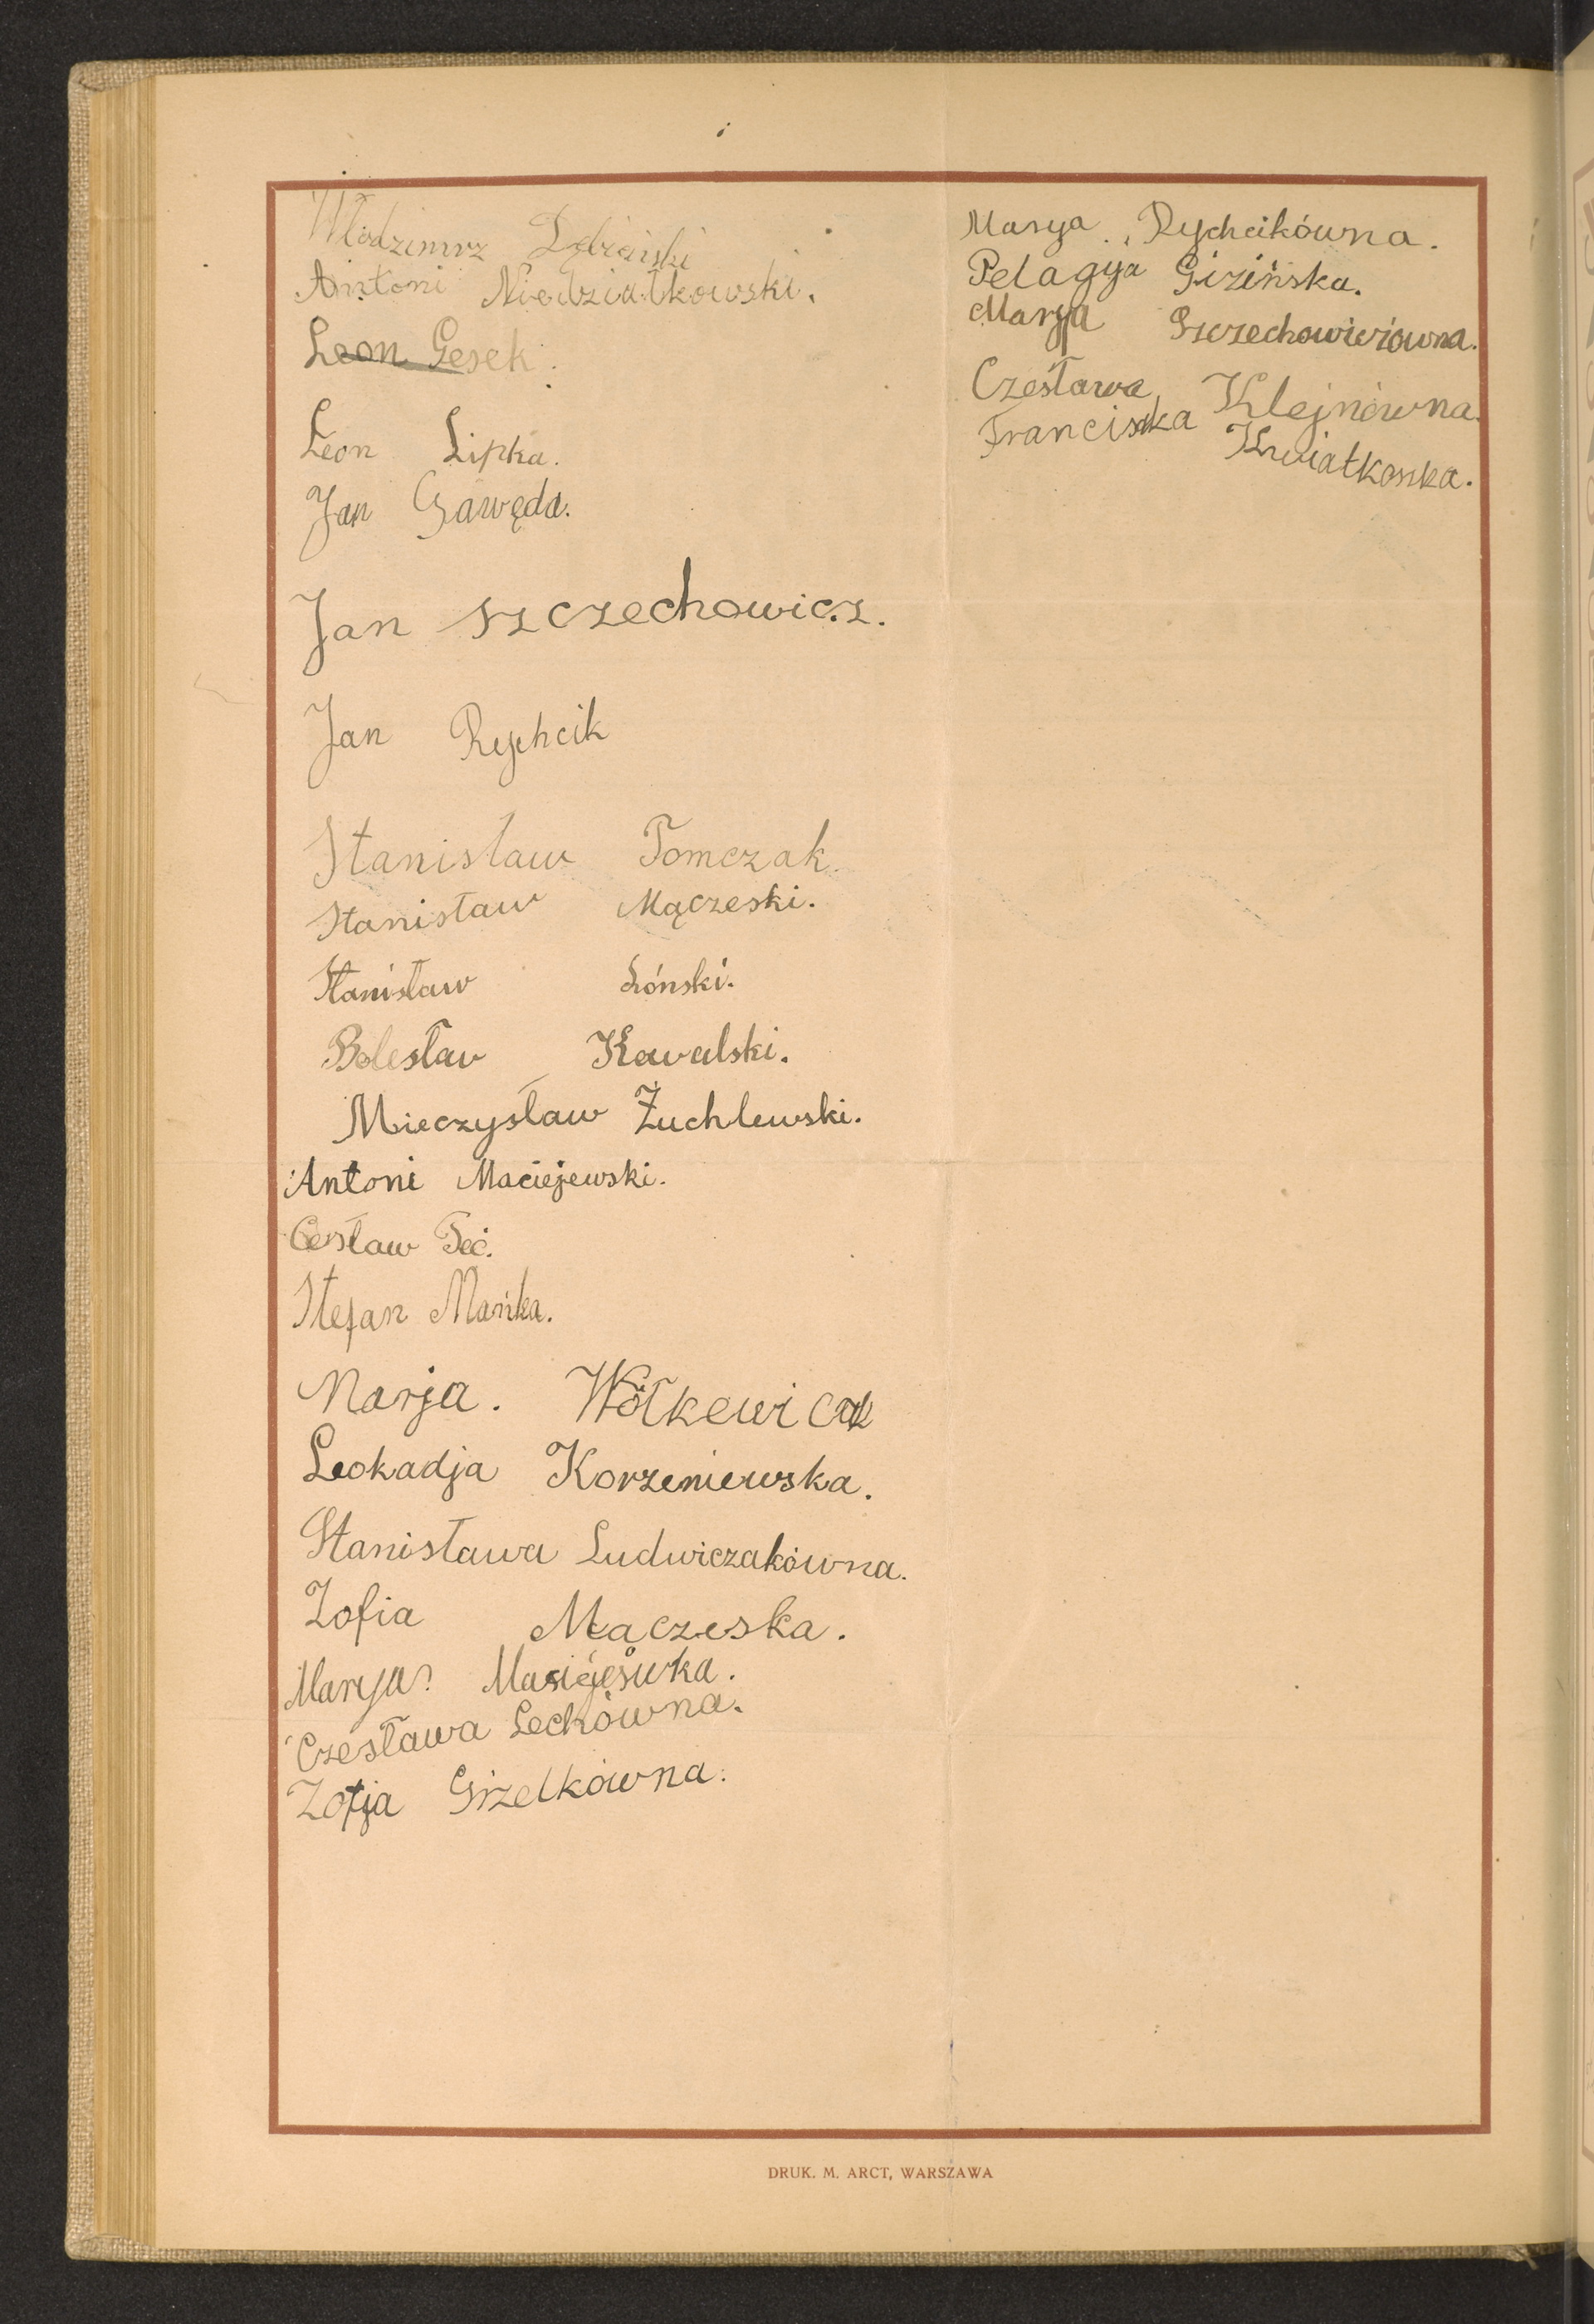 Włodzimirz
Antoni Niedziałkowski.
Leon Gesek.
Leon Lipka.
Jan Gawęda.
Jan Szczechowicz.
Jan Rychcik
Stanisław Tomczak.
Stanisław Mączeski.
Stanisław Łónski.
Bolesław Kowalski.
Mieczysław Żuchlewski.
Antoni Maciejewski.
Cesław Teć.
Stefan Mańka.
Marja. Wołkewicz
Leokadja Korzeniewska.
Stanisława Ludwiczakówna.
Zofia Mączeska.
Marya
Czesława Lechówna.
Zofja Grzelkówna.
Marya Rychcikówna.
Pelagya Gizińska.
Marya Szczechowiczówna.
Czesława Klejnówna.
Franciszka Kwiatkoska.
DRUK. M. ARCT, WARSZAWA